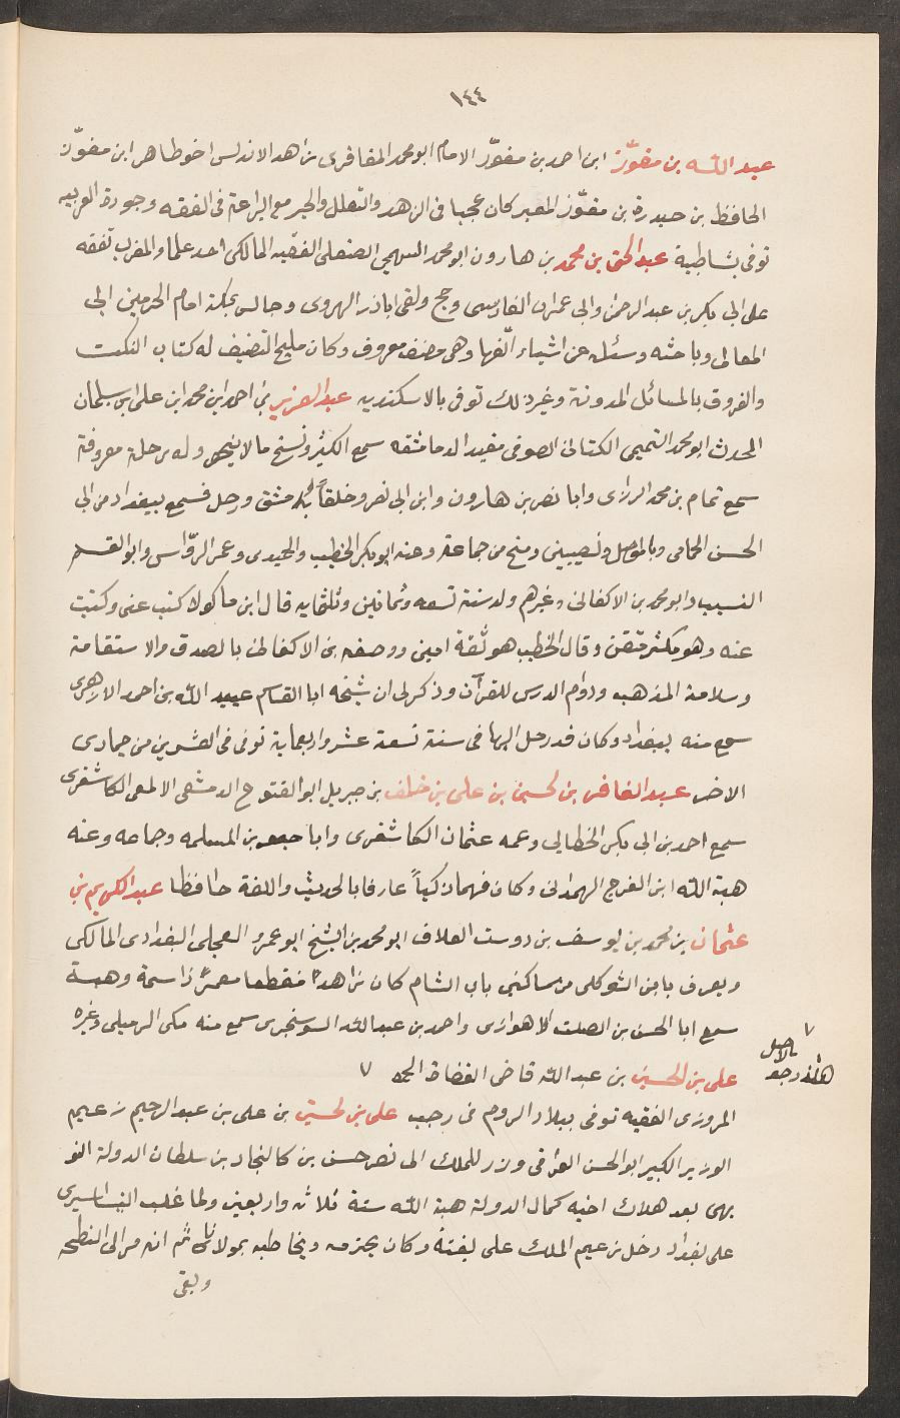 ١٤٤
عبد الله بن مفوّز ابن احمد بن مفوّز الامام ابو محمد المغافرى زاهد الاندلس اخو طاهر ابن مفوّز
الحافظ بن حيدرة بن مفوّز المعبر كان عجبا فى الزهد والتقلل والخير مع البراعة فى الفقه وجودة العربيه
توفى بشاطبة عبد الحق بن محمد بن هارون ابو محمد السهمي الصقلى الفقيه المالكى احد علماء المغرب تفقه
على ابى بكر بن عبد الرحمن وابى عمران الفارسى وحج ولقى ابا ذر الهروى وجالس بمكة امام الحرمين ابى
المعالى وباحثه وسئله عن اشياء الّفها وهى مصنف معروف وكان مليح التصنيف له كتاب النكت
والفروق بالمسائل المدونة وغير ذلك توفى بالاسكندريه عبد العزيز بن احمد ابن محمد ابن على ابن سلمان
المحدث ابو محمد التميمى الكتانى الصوفى مفيد الدماشقه سمع الكثير ونسخ مالا ينحصر وله رحلة معروفة
سمع تمام بن محمد الرازى وابا نصر بن هارون وابن ابى نصر وخلقاً بدمشق ورحل فسمع ببغداد من ابى
الحسن الحمامى وبالموصل ونصيبين ومنبج من جماعة وعنه ابو بكر الخطيب والحميدى وعمر الروّاس وابو القسم
النسيب وابو محمد بن الاكفانى وغيرهم ولد سنة تسعه وثمانين وثلثمايه قال ابن ماكولا كتب عنى وكتبت
عنه وهو مكثر متقن وقال الخطيب هو ثقة امين ووصفه بن الاكفانى بالصدق والاستقامة
وسلامة المذهب ودوام الدرس للقرآن وذكر لى ان شيخه ابا القاسم عبيد الله بن احمد الازهرى
سمع منه ببغداد وكان قد رحل اليها فى سنة تسعة عشر واربعماية توفى فى العشرين من جمادى
الاخر عبد الغافر بن لحسين بن على بن خلف بن جبريل ابو الفتوح الدمشقى الالمعى الكاشغرى
سمع احمد بن ابى بكر الخطابى وعمه عثمان الكاشغرى وابا جعفر بن المسلمه وجماعه وعنه
هبة الله ابن الفرج الهمدانى وكان فهما ذكياً عارفا بالحديث واللغة حافظا عبد الكريم بن
عثمان بن محمد بن يوسف بن دوست العلاف ابو محمد بن الشيخ ابو عمرو العجلى البغدادى المالكى
ويعرف بابن الشوكلى من ساكنى باب الشام كان زاهداً منقطعا معمّراً ذا سمة وهيبة
سمع ابا الحسن بن الصلت الاهوازى واحمد بن عبد الله السوسنجرى سمع منه مكى الرميلى وغيره
على بن الحسين بن عبد الله قاضى القضاة الحـ ٧
٧ بالاصل
هكذا وجد
المروزى الفقيه توفى ببلاد الروم فى رجب على بن لحسين بن على بن عبد الرحيم زعيم
الوزير الكبير ابو الحسن العراقى وزر للملك ابى نصر حسن بن كالنجاد بن سلطان الدولة البو
يهى بعد هلاك اخيه كمال الدولة هبة الله سنة ثلاث واربعين ولما غلب البساسيرى
على بغداد دخل زعيم الملك على بغتة وكان يحترمه ويخاطبه بمولانا ثم انه فر الى البطيحه
وبقى